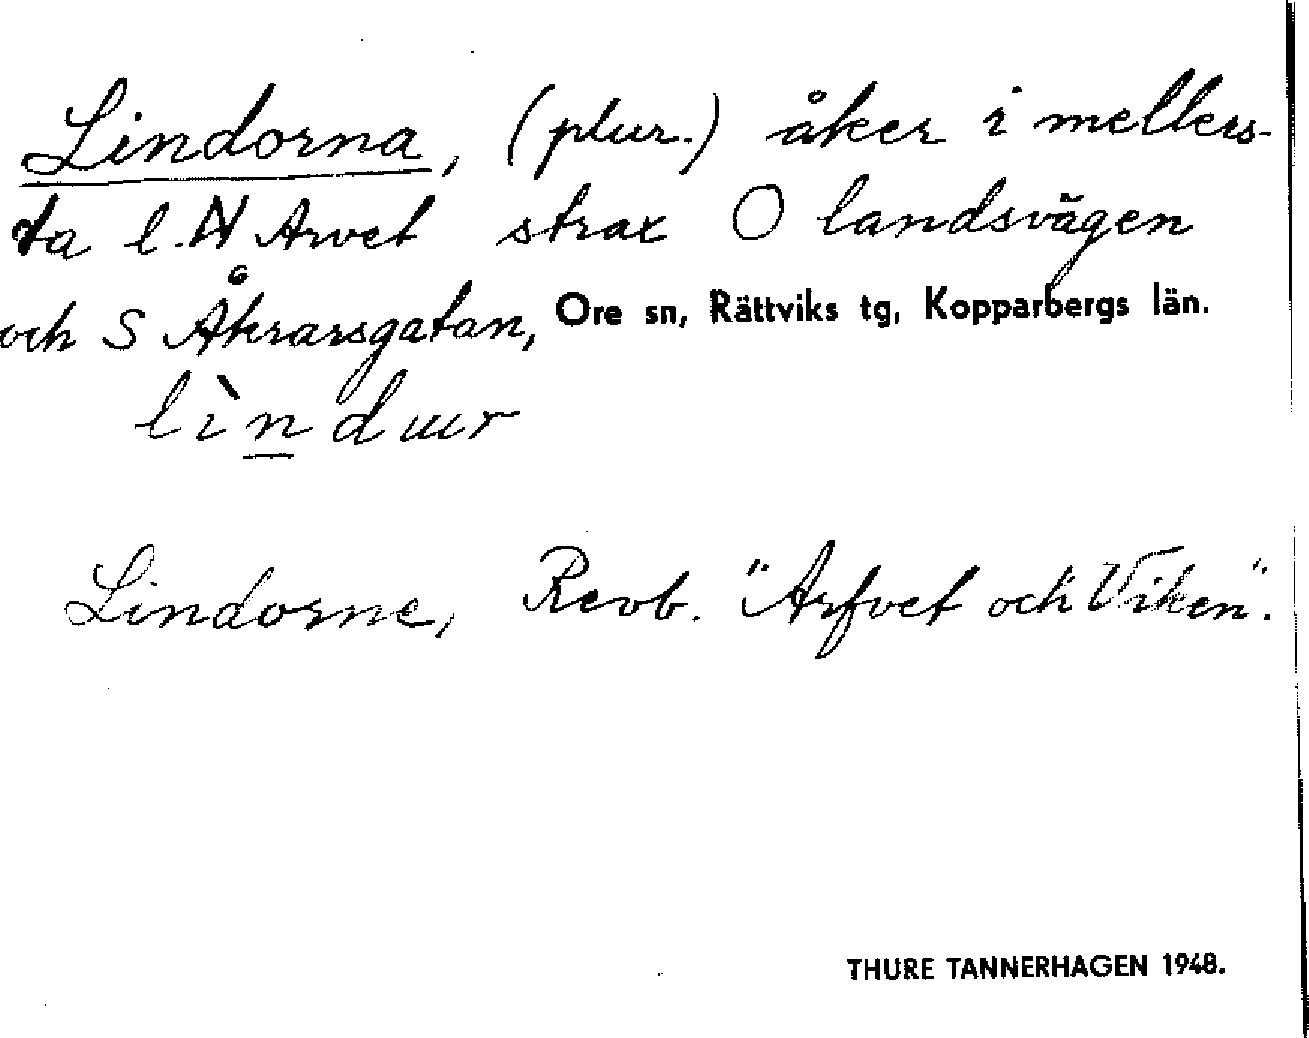 Lindorna, (plur.) åker i mellers-
ta l. N Arvet strax O landsvägen
och S Åkrarsgatan, Ore sn, Rättviks tg, Kopparbergs län.
lìnduur
Lindorne, Revb. "Arfvet och Viken".
THURE TANNERHAGEN 1948.